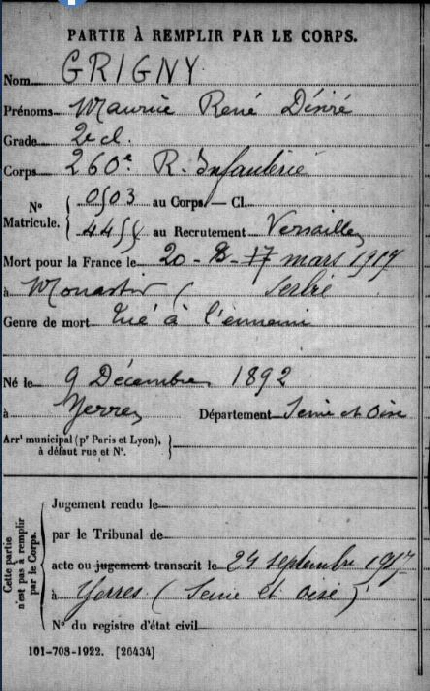 PARTIE À REMPLIR PAR LE CORPS.
Nom GRIGNY
Prénoms Maurice René Désiré
Grade 2e cl.
Corps 260e R. Infanterie
N° Matricule. 0503 au Corps. — Cl.
au Recrutement Versailles
Mort pour la France le 20 - mars 1917
à Monastir ( Serbie
Genre de mort Tué à l'ennemi
Né le 9 Décembre 1892
à Yerres Département Seine et Oise
Arrt municipal (pr Paris et Lyon),
à défaut rue et N°.
Cette partie n'est pas à remplir par le Corps.
Jugement rendu le
par le Tribunal de
acte ou jugement transcrit le 24 septembre 1917
à Yerres (Seine et Oise)
N° du registre d'état civil
101-708-1922. [26434]